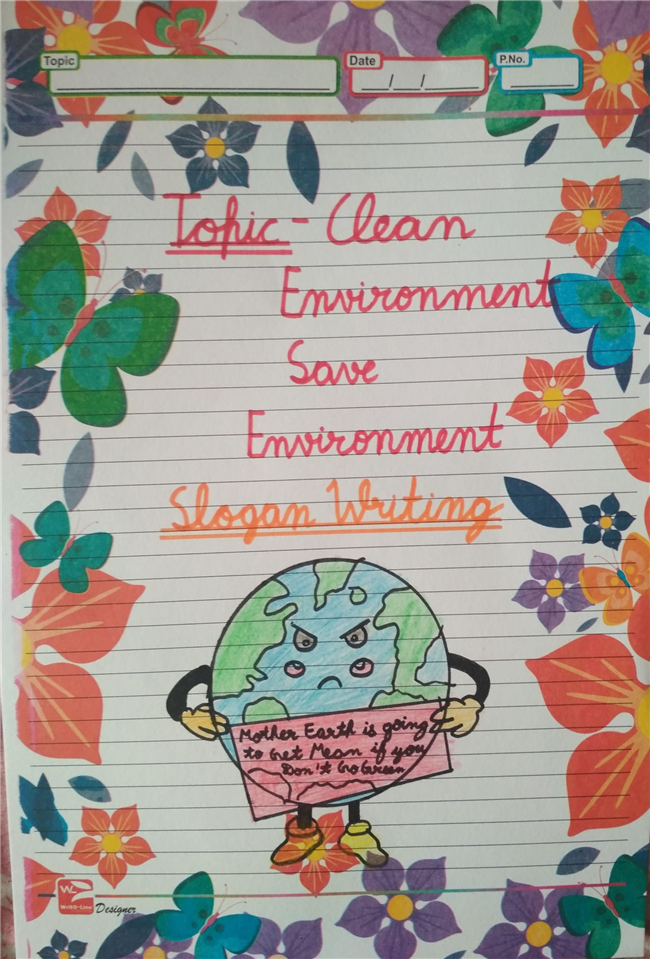 Topic
Date
P.No.
Topic - Clean
Environment
Save
Environment
Slogan Writing
Mother Earth is going
to Get Mean if you
Don't Go Green
Designer